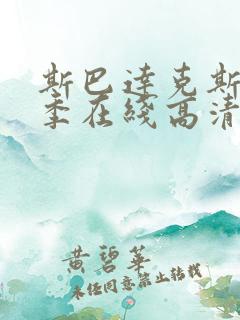 斯巴達克斯
季在綫高清
黄碧華
未经同意禁止转载